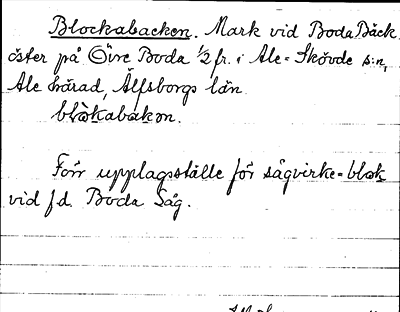 Blockabacken. Mark vid Boda Bäck
öster på Övre Boda 1/2 fr. i Ale-Skövde s:n,
Ale härad, Älfsborgs län.
blòkabakən.
Förr upplagsställe för sågvirke=blok
vid f.d. Boda Såg.